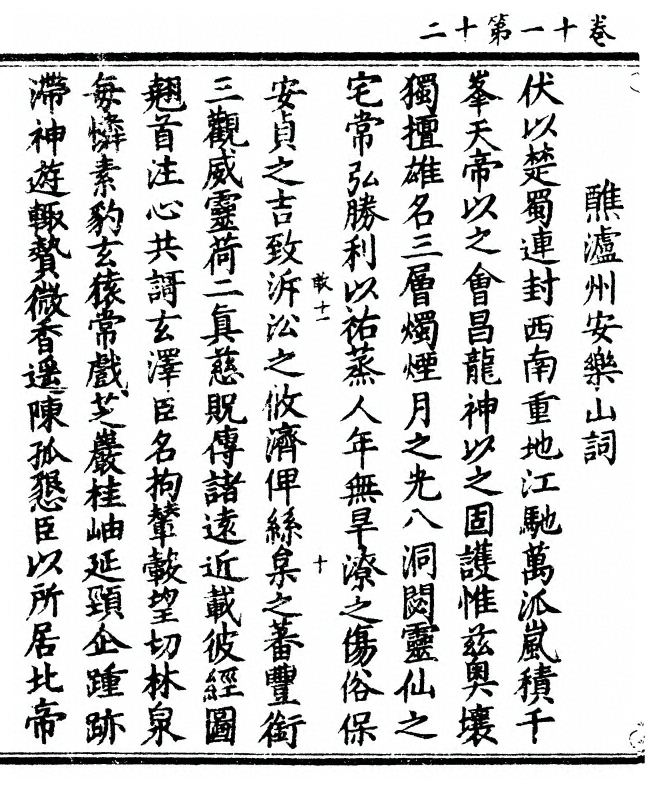 卷十一第十二
醮瀘州安樂山詞
伏以楚蜀連封西南重地江馳萬派嵐積千
峯天帝以之會昌龍神以之固護惟茲奧壤
獨擅雄名三層燭煙月之光八洞閟靈仙之
宅常弘勝利以祐蒸人年無旱潦之傷俗保
敢十一
十
安貞之吉致泝沿之攸濟俾絲枲之蕃豐銜
三觀威靈荷二真慈貺傳諸遠近載彼經圖
翹首注心共謌玄澤臣名拘輦轂望切林泉
每憐素豹玄猿常戲芝巖桂岫延頸企踵跡
滯神遊輙贄微香遥陳孤懇臣以所居北帝